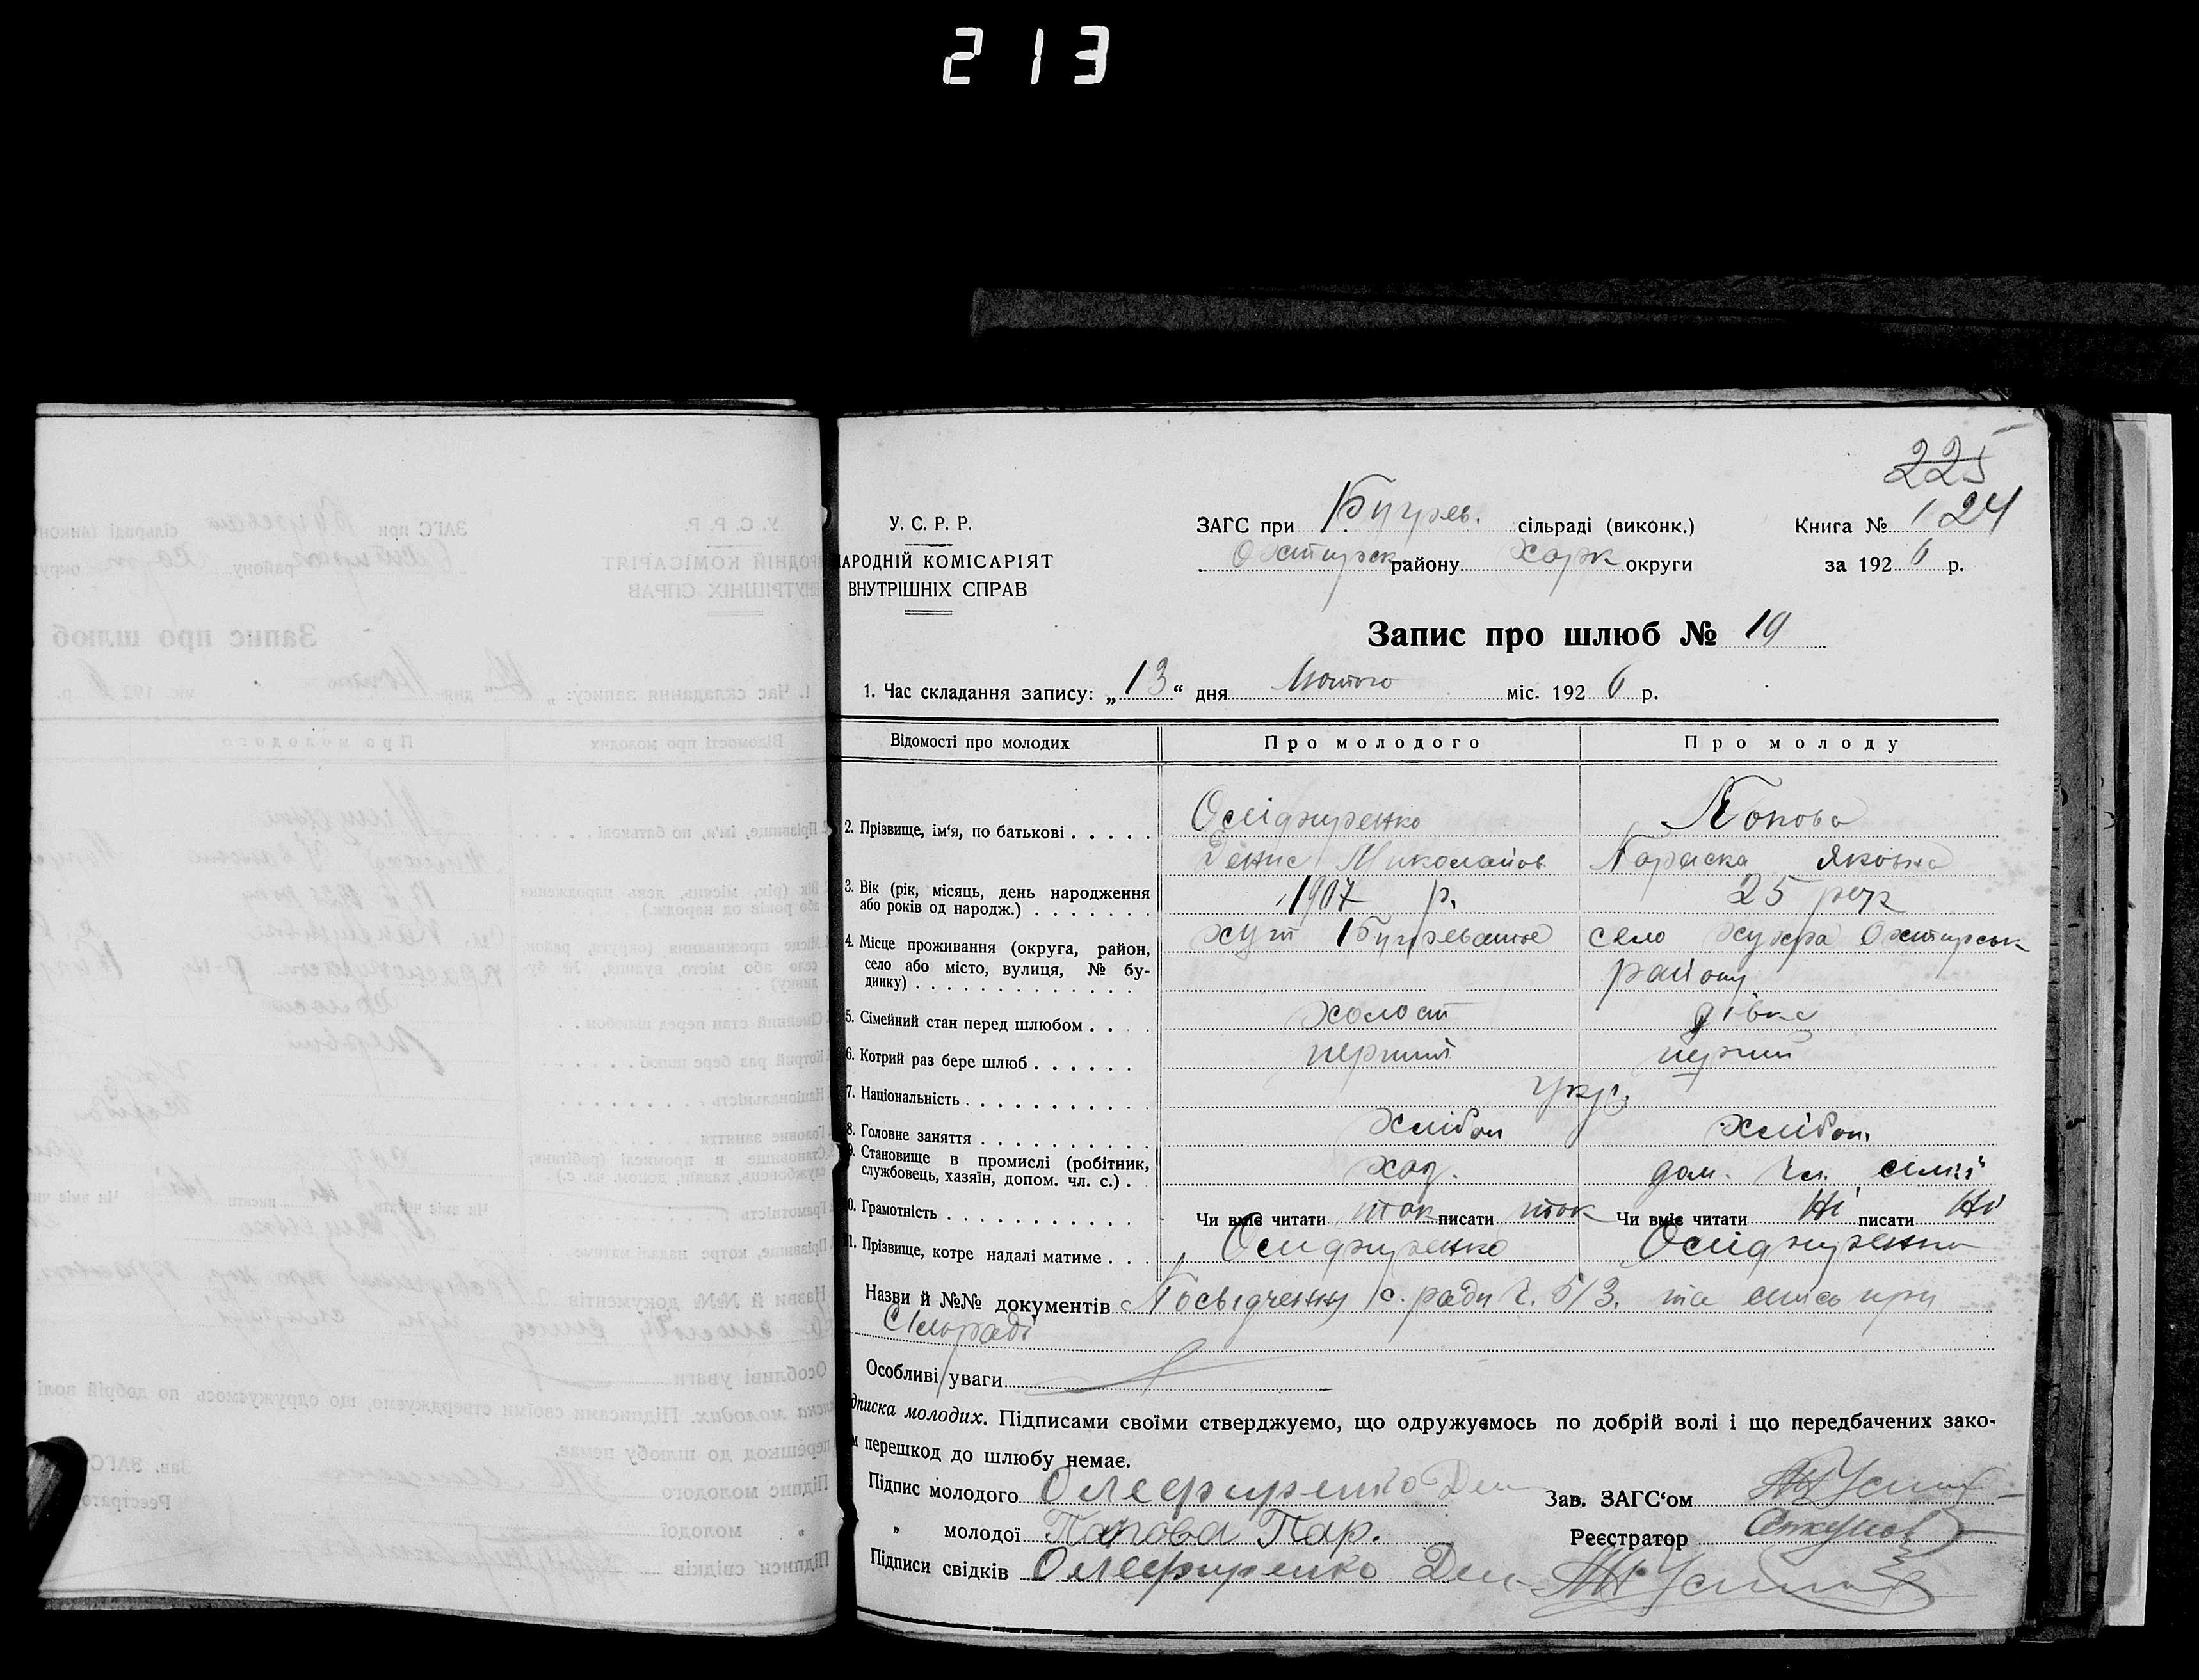 213
225
124
У. С. Р. Р.
АРОДНІЙ КОМІСАРІЯТ
ВНУТРІШНІХ СПРАВ
ЗАГС при Бугрев. сільраді (виконк.)
Охтирск району Харк округи
Книга № 1
за 1926 р.
Запис про шлюб № 19
1. Час складання запису: „13“ дня Лютого міс. 1926 р.
Відомості про молодих
Про молодого
Про молоду
2. Прізвище, ім'я, по батькові . . . . .
Попова
Денис Миколайов
Параска Яковна
3. Вік (рік, місяць, день народження
або років од народж.) . . . . . . .
1907 р.
25 рок
4. Місце проживання (округа, район,
село або місто, вулиця, № бу-
динку) . . . . . . . . . . . . .
хут Бугреватое
село Хухра Охтирськ
району
5. Сімейний стан перед шлюбом . . . .
холост
дівка
6. Котрий раз бере шлюб . . . . . .
перший
перший
7. Національність . . . . . . . . . . .
Укр.
8. Головне заняття . . . . . . . . . .
Хлібоп
Хлібоп.
9. Становище в промислі (робітник,
службовець, хазяїн, допом. чл. с.) . .
дом. чл. сімї
0. Грамотність . . . . . . . . . . . .
Чи вміє читати так писати так
Чи вміє читати Ні писати Ні
1. Прізвище, котре надалі матиме . . .
Назви й №№ документів Посвідчення с. ради ч. 513. та спись при
Сільраді
Особливі уваги
дписка молодих. Підписами своїми стверджуємо, що одружуємось по добрій волі і що передбачених зако-
м перешкод до шлюбу немає.
Підпис молодого Олефиренко Ден
Зав. ЗАГС'ом
„ молодої Папова Пар.
Реєстратор
Підписи свідків Олефиренко Ден